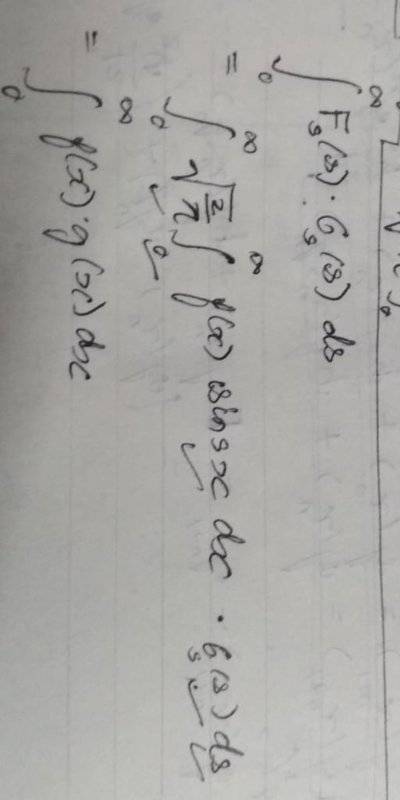 ∫₀^∞ F_s(s) · G_s(s) ds
= ∫₀^∞ √(2/π) ∫₀^∞ f(x) sin sx dx · G_s(s) ds
= ∫₀^∞ f(x) · g(x) dx